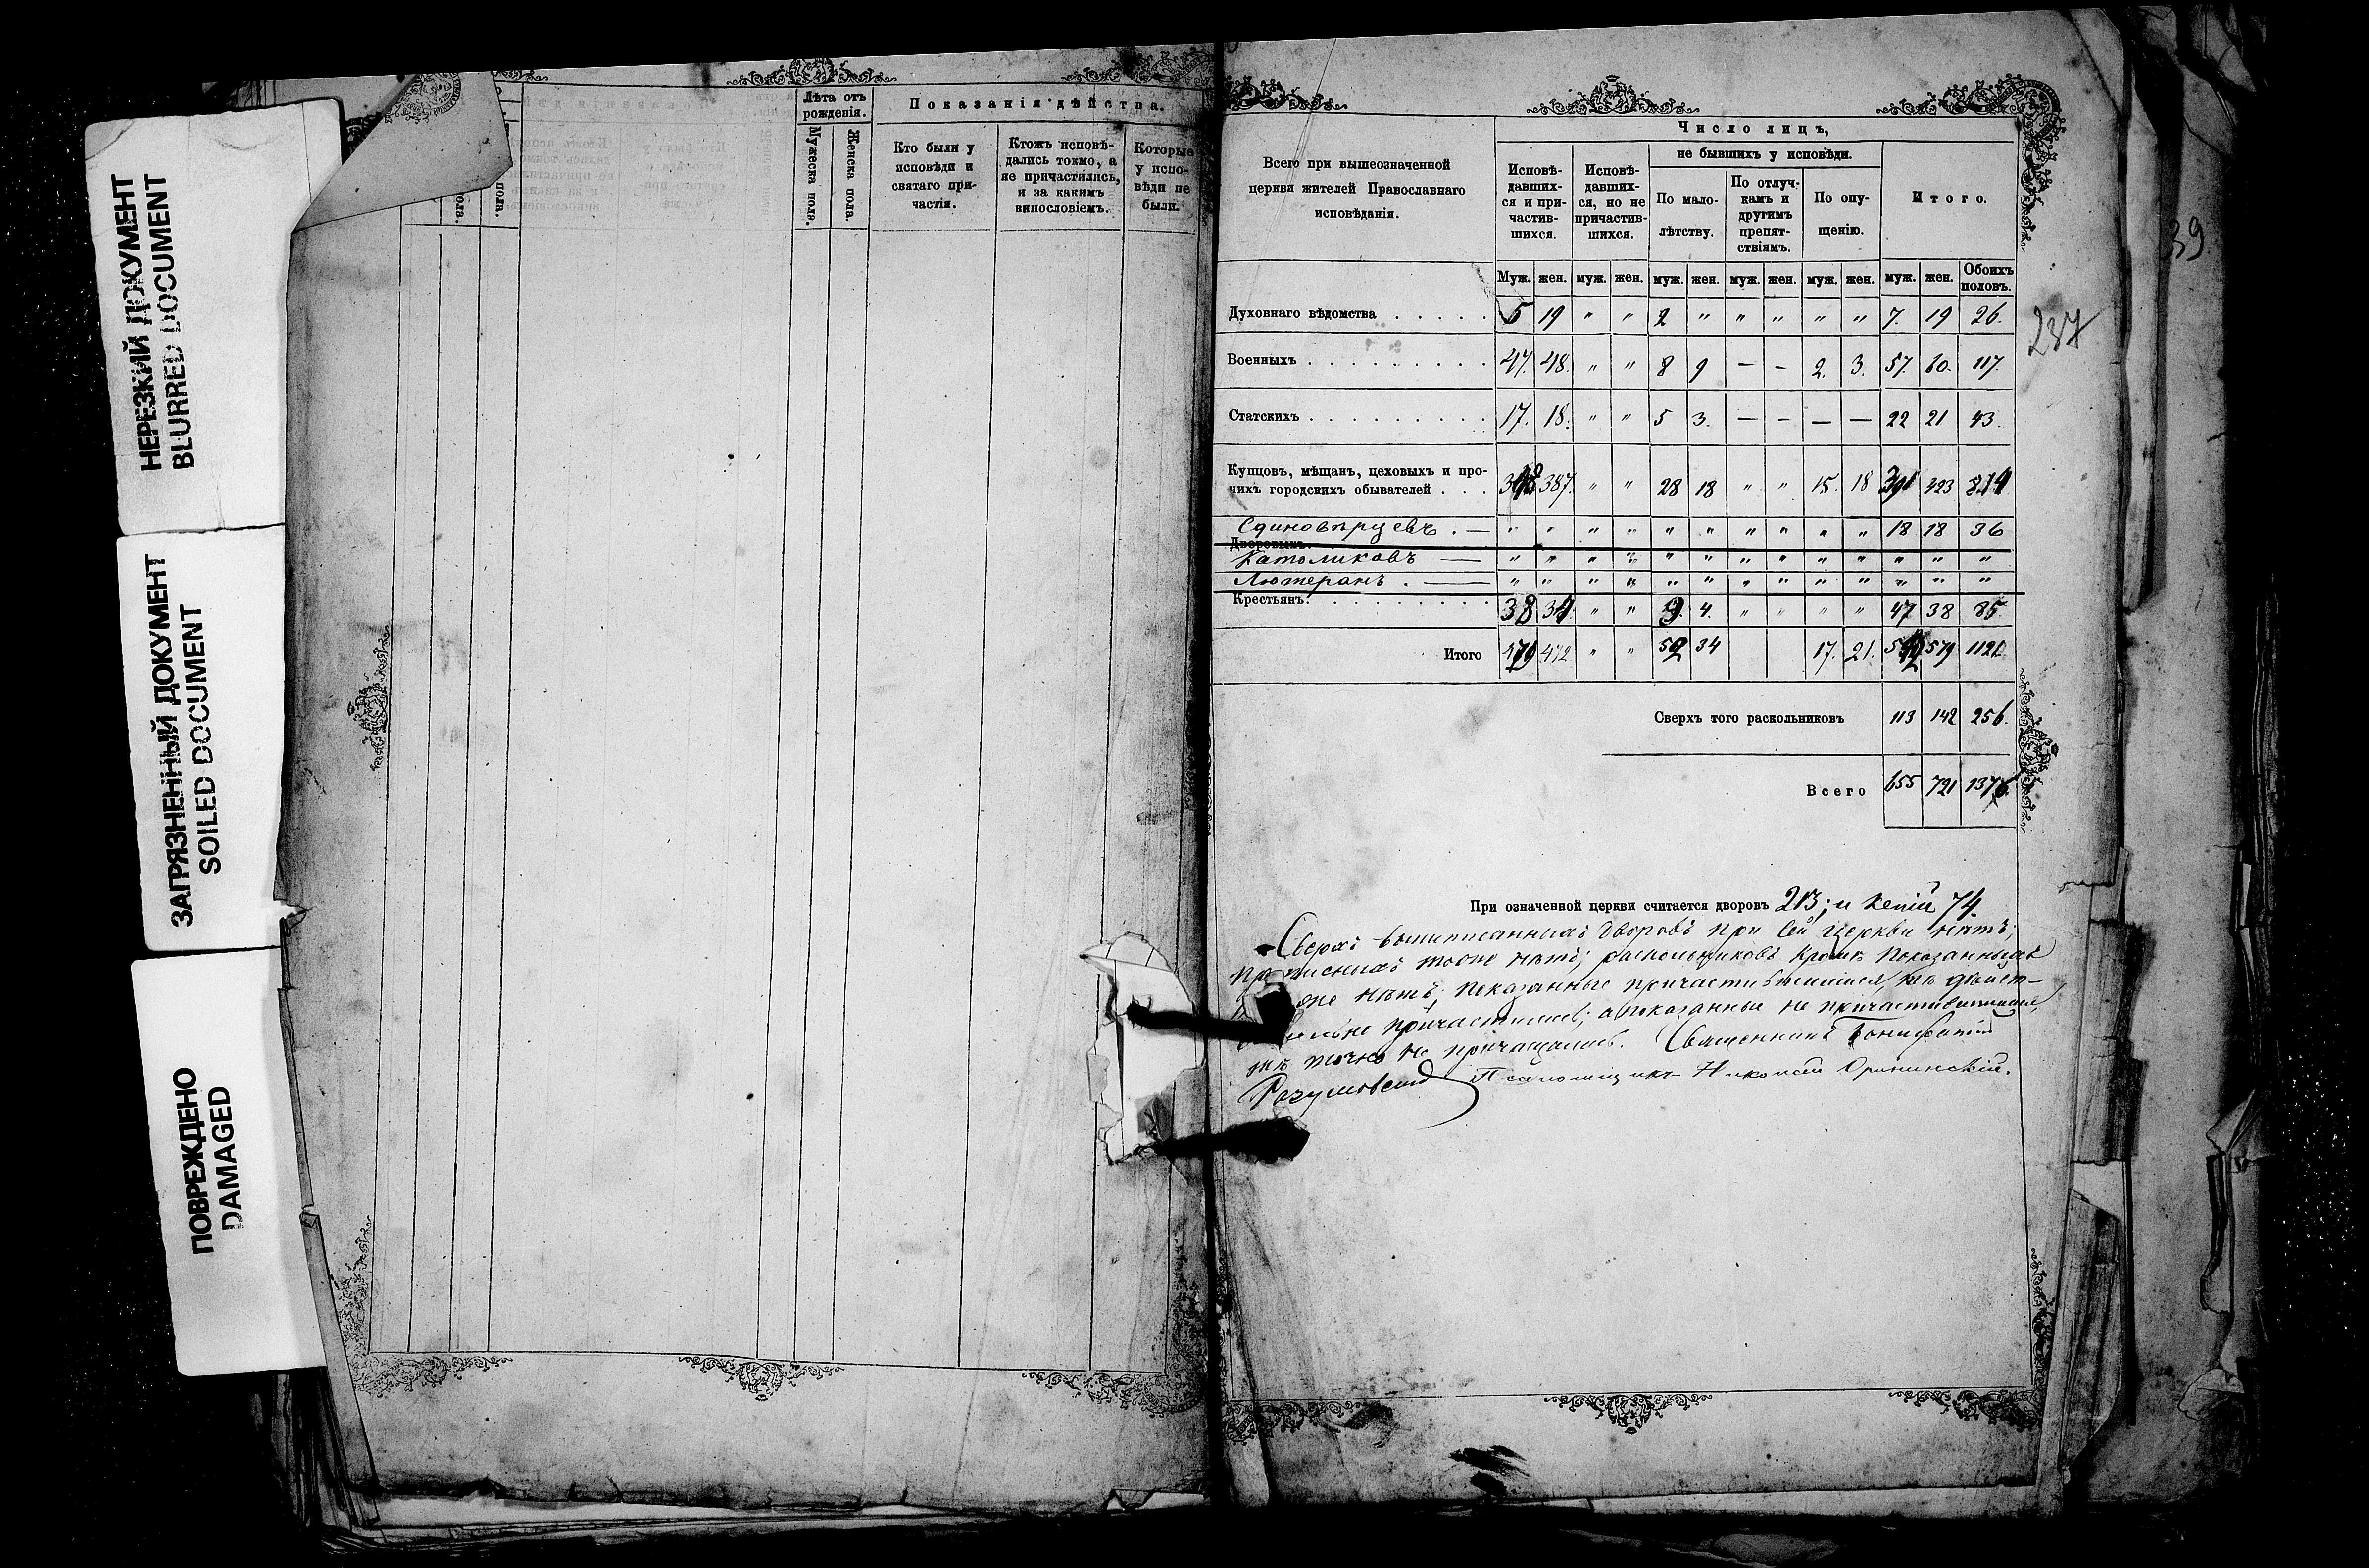 НЕРЕЗКИЙ ДОКУМЕНТ
BLURRED DOCUMENT
ЗАГРЯЗНЕННЫЙ ДОКУМЕНТ
SOILED DOCUMENT
ПОВРЕЖДЕНО
DAMAGED
пола.
пола.
Лѣта отъ рожденія.
Мужеска пола.
Женска пола.
Показанія дѣйства.
Кто были у исповѣди и святаго причастія.
Ктожъ исповѣдались токмо, а не причастились, и за какимъ винословіемъ.
Которые у исповѣди не были.
Всего при вышеозначенной
церкви жителей Православнаго
исповѣданія.
Число лицъ,
Исповѣдавшихся и причастившихся.
Исповѣдавшихся, но не причастившихся.
не бывшихъ у исповѣди.
По малолѣтству.
По отлучкамъ и другимъ препятствіямъ.
По опущенію.
Итого.
Муж. жен. муж. жен. муж. жен. муж. жен. муж. жен. муж. жен. Обоихъ половъ.
Духовнаго вѣдомства . . . . . 5 19 " " 2 " " " " " 7. 19 26.
Военныхъ . . . . . . . . . 47. 48. " " 8 9 — - 2. 3. 57. 60. 117.
Статскихъ . . . . . . . . . 17. 18. " " 5 3. — - — — 22 21 43.
Купцовъ, мѣщанъ, цеховыхъ и про-
чихъ городскихъ обывателей . . . 387. " " 28 18 " " 15. 18 391 423 814
Единовѣрцевъ . — " " " " " " " " " " 18 18 36
Дворовыхъ.
Католиковъ — " " " " " " " " " " " " "
Лютеранъ . — " " " " " " " " " " " " "
Крестьянъ. . . . . . . . . 38 34. " " 9. 4. " " " " 47 38 85
Итого 472 " " 52 34 17. 21. 579 1121.
Сверхъ того раскольниковъ 113 142 256.
Всего 655 721 1376
39
237
При означенной церкви считается дворовъ 213; и 74.
Сверхъ вышеписанныхъ дворовъ при сей церкви нѣтъ;
тоже нѣтъ; раскольниковъ кромѣ показанныхъ
нѣтъ; показанные причастившимися, тѣ дѣйст-
причастились; а показанные не причастившимися,
тѣ точно не причащались. Священникъ Вонифатій
Разумовскій Псаломщикъ Николай